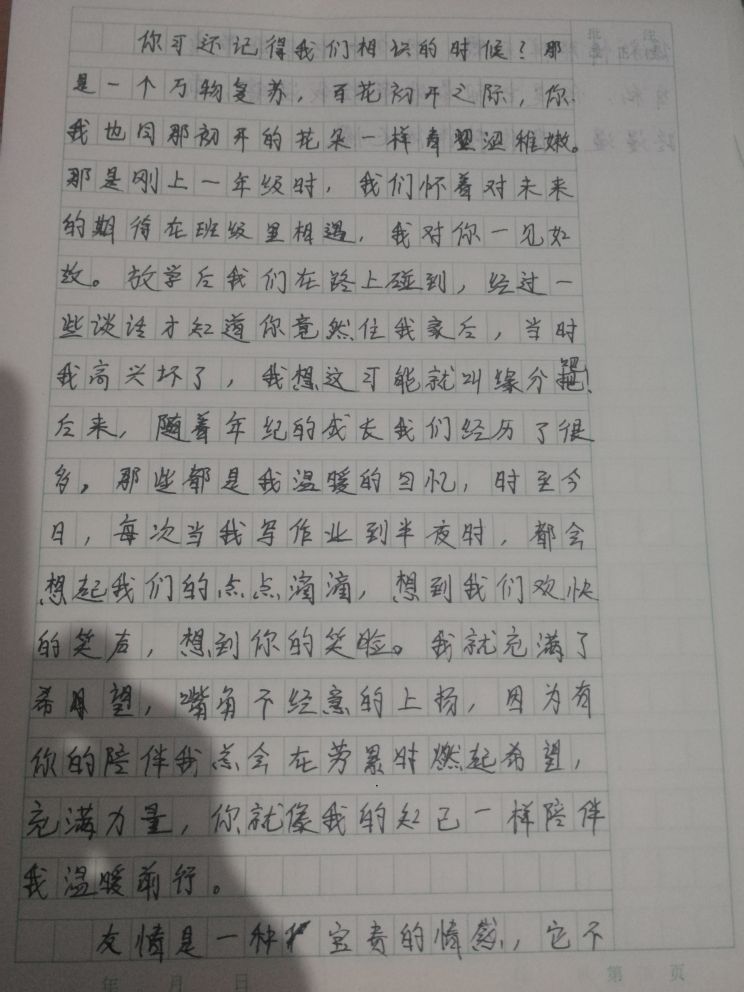 你可还记得我们相识的时候？那
是一个万物复苏，百花初开之际，你
我也同那初开的花朵一样青涩稚嫩。
那是刚上一年级时，我们怀着对未来
的期待在班级里相遇，我对你一见如
故。放学后我们在路上碰到，经过一
些谈话才知道你竟然住我家后，当时
我高兴坏了，我想这可能就叫缘分吧！
后来，随着年纪的成长我们经历了很
多。那些都是我温暖的回忆，时至今
日，每次当我写作业到半夜时，都会
想起我们的点点滴滴，想到我们欢快
的笑声，想到你的笑脸。我就充满了
希望，嘴角不经意的上扬，因为有
你的陪伴我总会在劳累时燃起希望，
充满力量，你就像我的知己一样陪伴
我温暖前行。
友情是一种宝贵的情感，它不
年 月 日 第 页